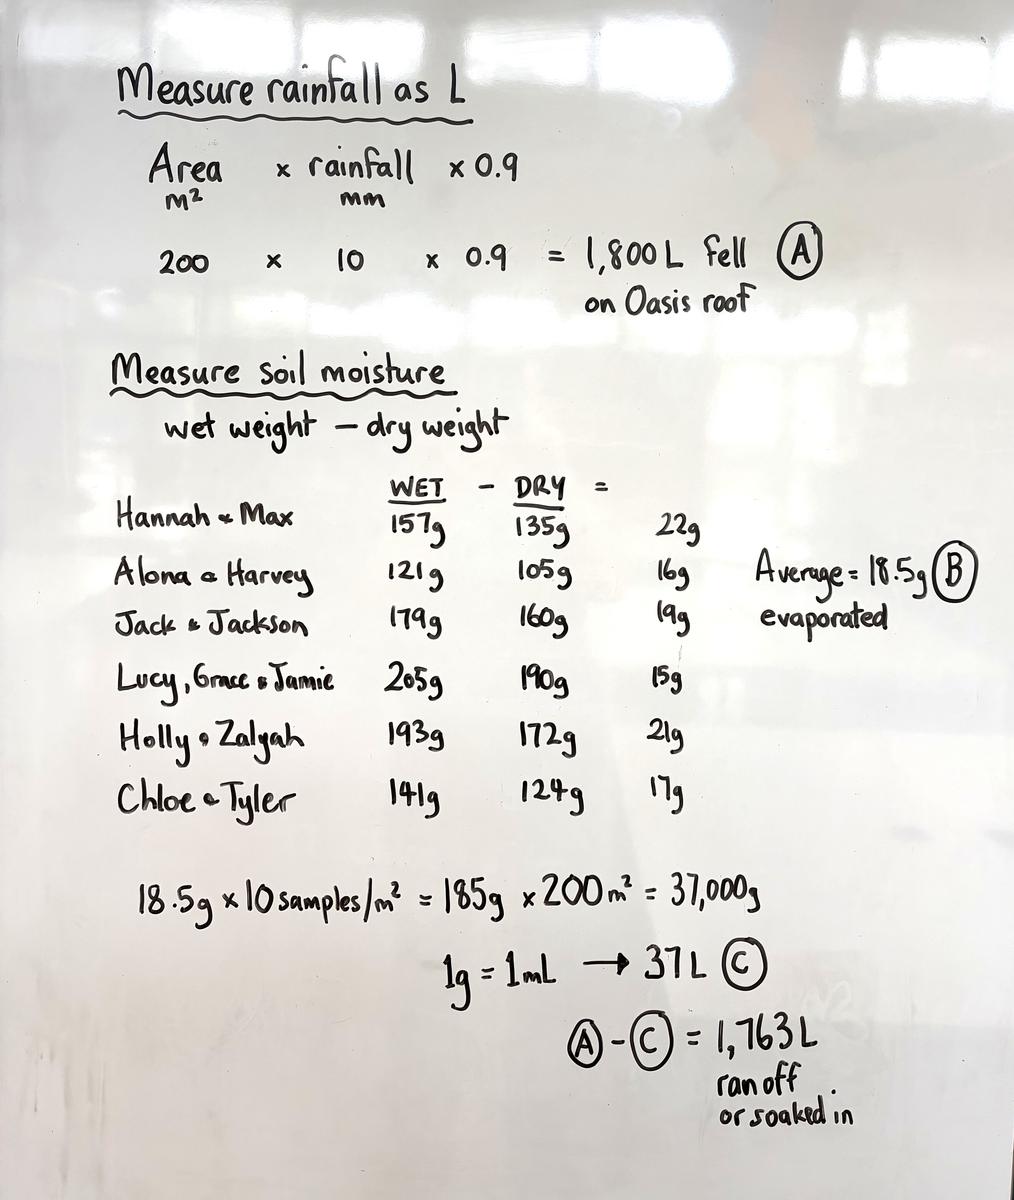 Measure rainfall as L
Area x rainfall x 0.9
m² mm
200 x 10 x 0.9 = 1,800L fell A
on Oasis roof
Measure soil moisture
wet weight – dry weight
WET - DRY =
Hannah & Max 157g 135g 22g
Alona & Harvey 121g 105g 16g
Average = 18.5g B
evaporated
Jack & Jackson 179g 160g 19g
Lucy, Grace & Jamie 205g 190g 15g
Holly & Zalyah 193g 172g 21g
Chloe & Tyler 141g 124g 17g
18.5g x 10 samples/m² = 185g x 200m² = 37,000g
1g = 1mL → 37L C
A - C = 1,763L
ran off
or soaked in